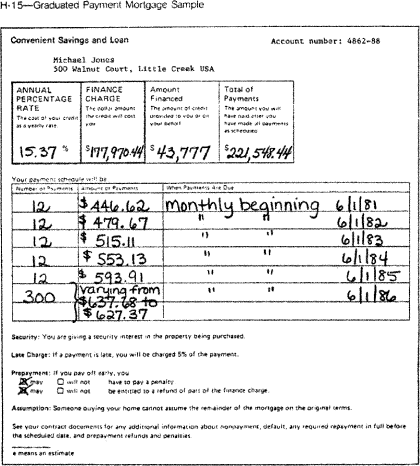 H-15—Graduated Payment Mortgage Sample
Convenient Savings and Loan Account number: 4862-88
Michael Jones
500 Walnut Court, Little Creek USA
ANNUAL PERCENTAGE RATE
The cost of your credit as a yearly rate.
15.37 %
FINANCE CHARGE
The dollar amount the credit will cost you
$177,970.44
Amount Financed
The amount of credit provided to you or on your behalf
$43,777
Total of Payments
The amount you will have paid after you have made all payments as scheduled
$221,548.44
Your payment schedule will be
Number of Payments Amount of Payments When Payments Are Due
12 $446.62 Monthly beginning 6/1/81
12 $479.67 " " 6/1/82
12 $515.11 " " 6/1/83
12 $553.13 " " 6/1/84
12 $593.91 " " 6/1/85
300 varying from " " 6/1/86
$637.68 to
$627.37
Security: You are giving a security interest in the property being purchased.
Late Charge: If a payment is late, you will be charged 5% of the payment.
Prepayment: If you pay off early, you
may will not have to pay a penalty
may will not be entitled to a refund of part of the finance charge.
Assumption: Someone buying your home cannot assume the remainder of the mortgage on the original terms.
See your contract documents for any additional information about nonpayment, default, any required repayment in full before
the scheduled date, and prepayment refunds and penalties
e means an estimate